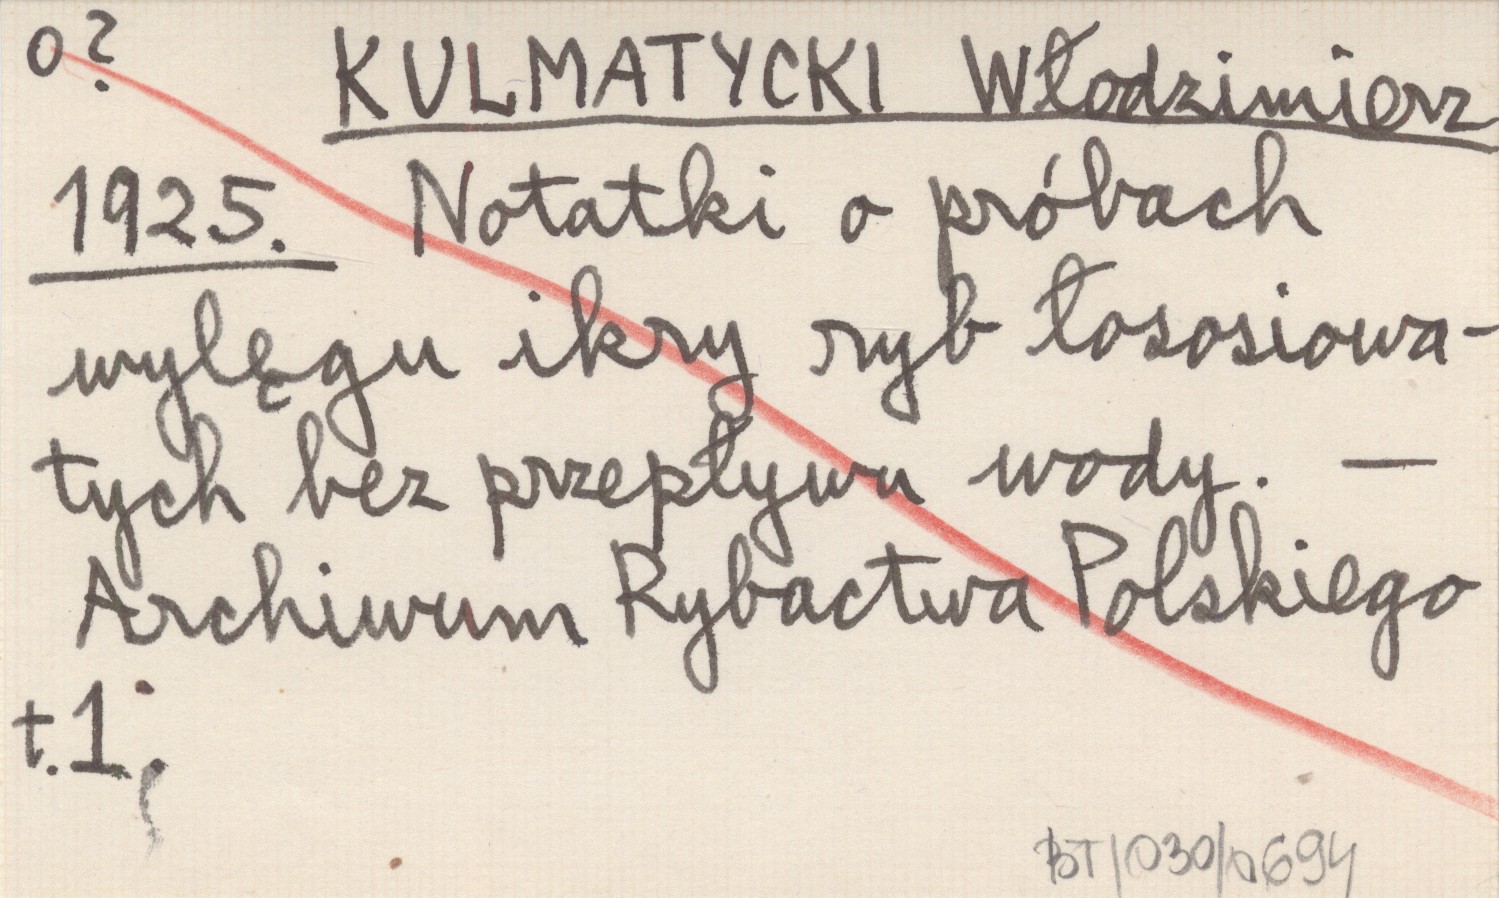 o?
KULMATYCKI Włodzimierz
1925. Notatki o próbach
wylęgu ikry ryb łososiowa-
tych bez przepływu wody. —
Archiwum Rybactwa Polskiego
t.1,
BT/030/0694